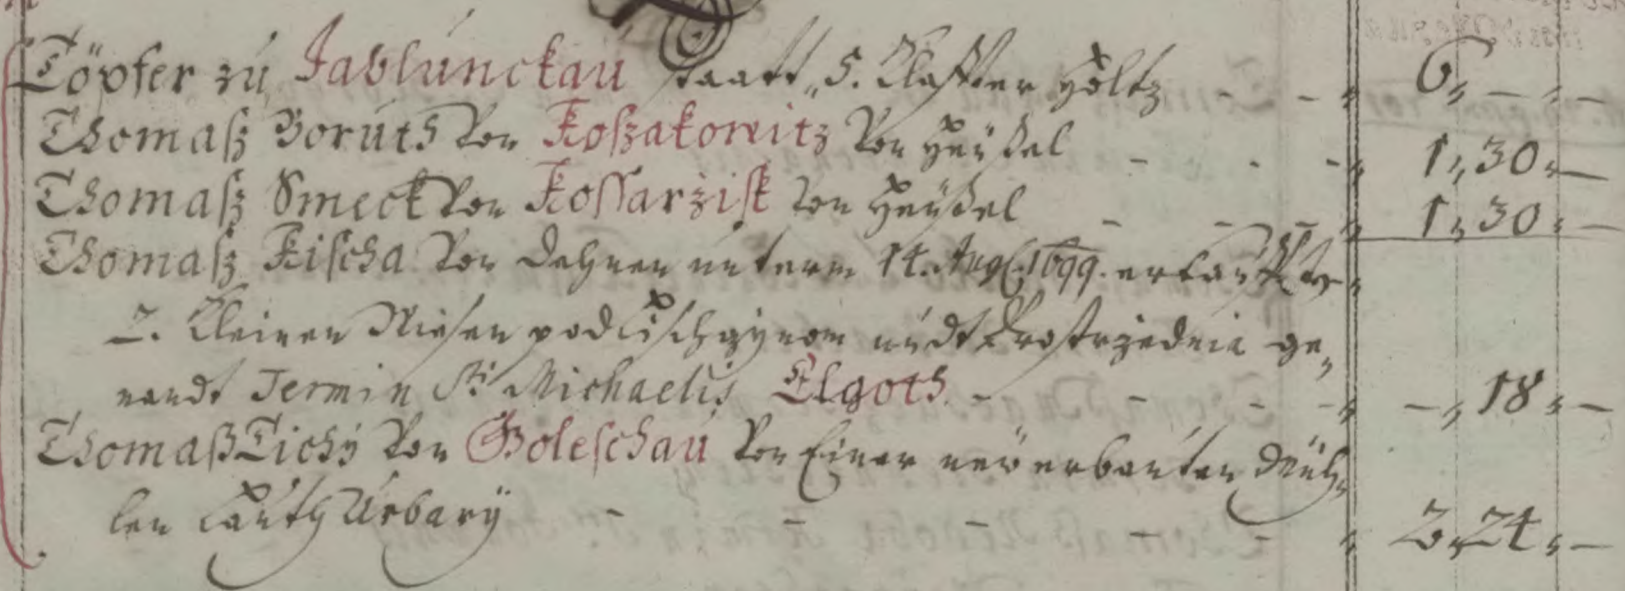 Töpfer zu Jablunckau staatt 5. Klafter Holtz - - „ 6 „ — „ —
Thomaß Boruth von Koßakowitz von Heüßel - - - „ 1 „ 30 „ —
Thomaß Smeck von Kossarzisk von Heüßel - - - „ 1 „ 30 „ —
Thomaß Kischa von unterm 14. Aug. 1699. erkauffte
2. Kleinen Wiesen undt ge„
nandt Termin St. Michaelis Elgoth - - - - „ — „ 18 „ —
Thomaß Tichy von Goleschau von Einer neü erbauten Müh„
len lauth Urbary - - - - - „ 2 „ 24 „ —